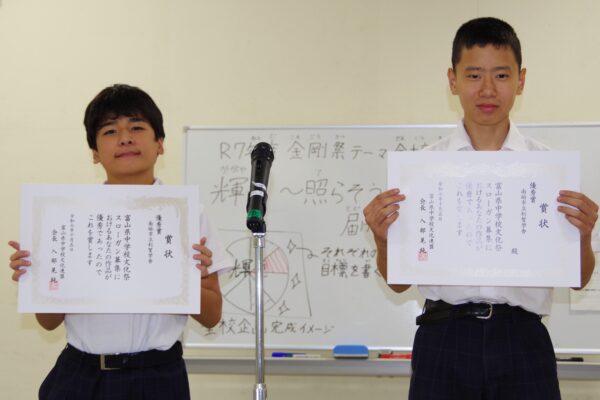 R7年度 金剛祭テーマ
輝
～照らそう
届
それぞれの
目標を書
輝
全校企画完成イメージ
賞状
優秀賞
南砺市立利賀学舎
富山県中学校文化祭
スローガン募集に
おけるあなたの作品が
優秀であったので
これを賞します
富山県中学校文化連盟
会長
賞状
優秀賞
南砺市立利賀学舎
殿
富山県中学校文化祭
スローガン募集に
おけるあなたの作品が
優秀であったので
これを賞します
富山県中学校文化連盟
会長